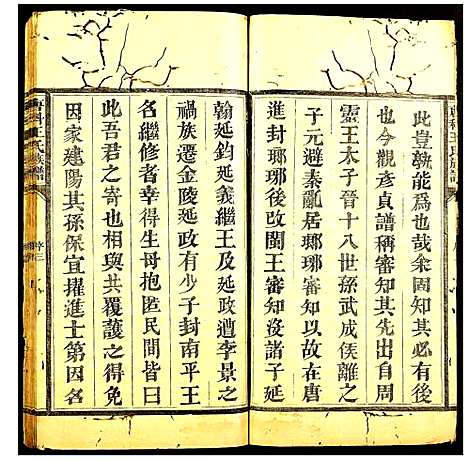 此豈孰能為也哉余固知其必有後
也今觀彥貞譜稱審知其先出自
靈王太子晉十八世孫武成侯離之
子元避秦亂居瑯琊審知以故在唐
進封瑯琊後改閩王審知沒諸子延
翰延鈞延義繼王及延政遭李景之
禍族遷金陵延政有少子封南平王
名繼修者幸得生母抱匿民間皆曰
此吾君之子也相與共覆護之得免
因家建陽其孫保宜擢進士第因名
王氏族譜
序三